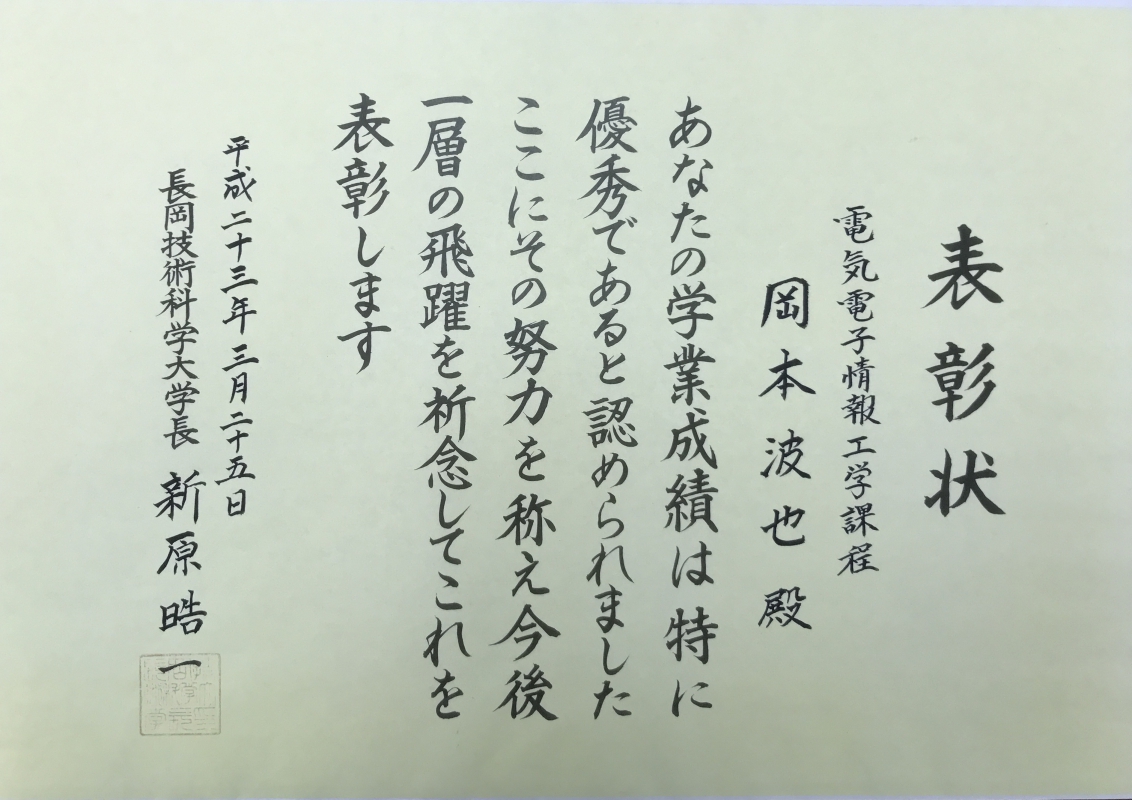 表彰状
電気電子情報工学課程
岡本波也殿
あなたの学業成績は特に
優秀であると認められました
ここにその努力を称え今後
一層の飛躍を祈念してこれを
表彰します
平成二十三年三月二十五日
長岡技術科学大学長 新原晧一